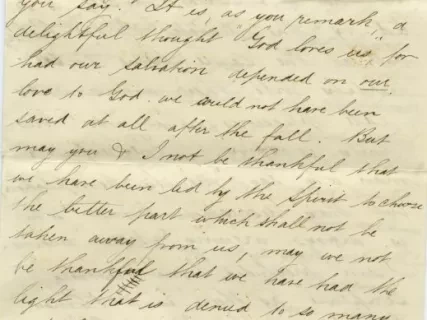 you say." It is, as you remark, "a
delightful thought God loves us" for
had our salvation depended on our
love to God. we could not have been
saved at all after the fall. But
may you & I not be thankful that
we have been led by the Spirit to choose
the better part which shall not be
taken away from us, may we not
be thankful that we have had the
light that is denied to so many